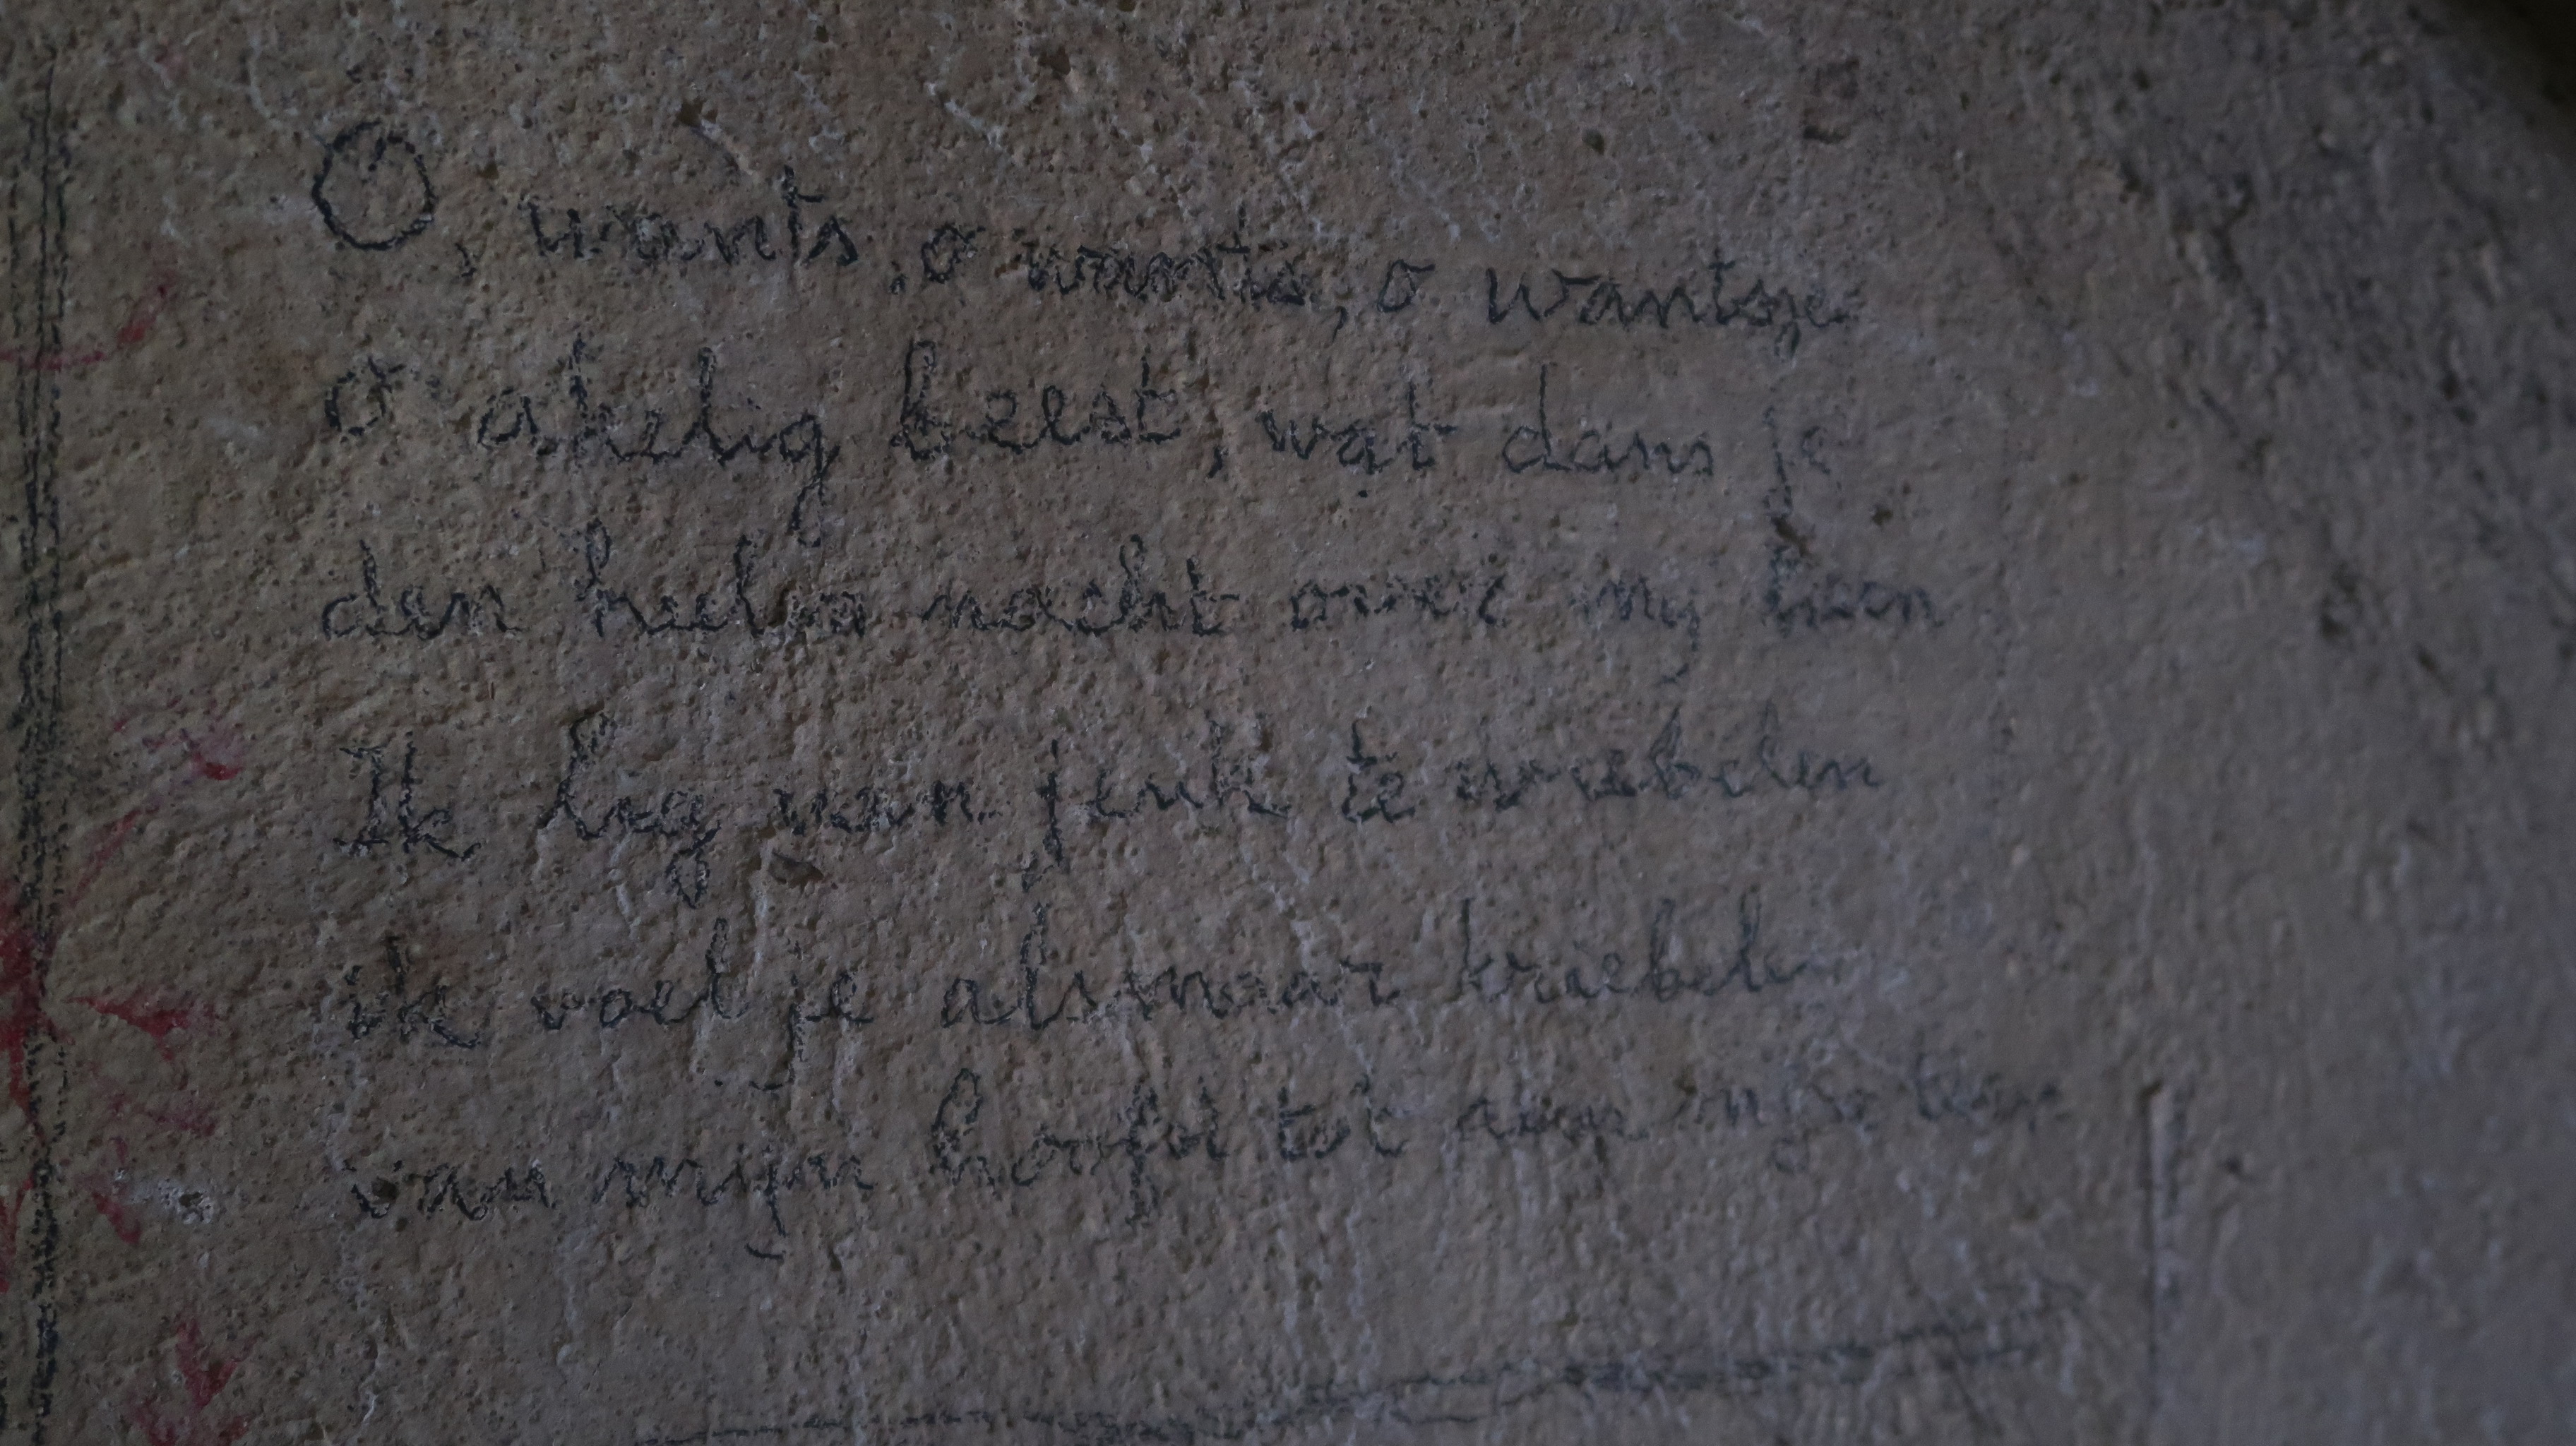 O, wants, o wants, o wantsje
O akelig beest, wat dans je
den heelen nacht over mij heen
Ik leg van jeuk te wiebelen
ik voel je alsmaar kriebelen
van mijn hoofd tot aan mijn teen